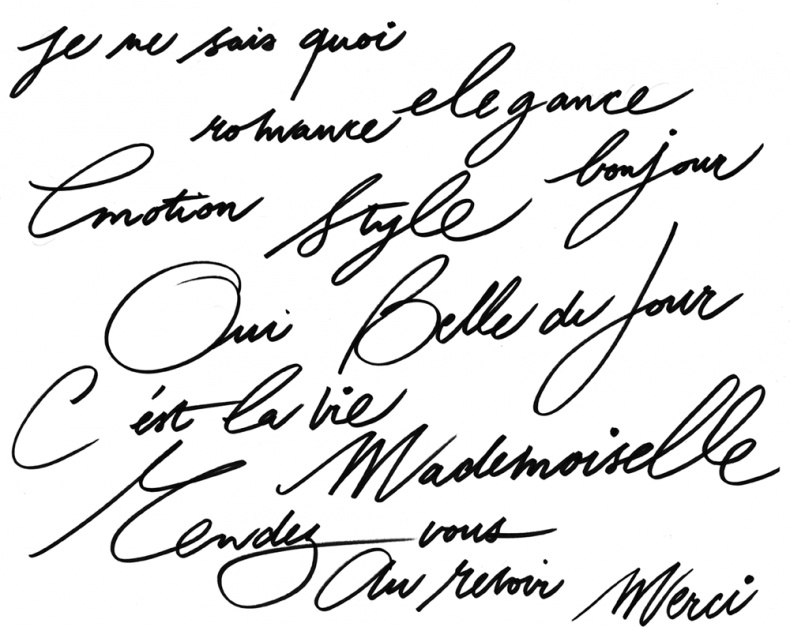 je ne sais quoi
elegance
romance
bonjour
Emotion Style
Oui Belle du Jour
C'est la vie
Mademoiselle
Rendez-vous
Au revoir Merci